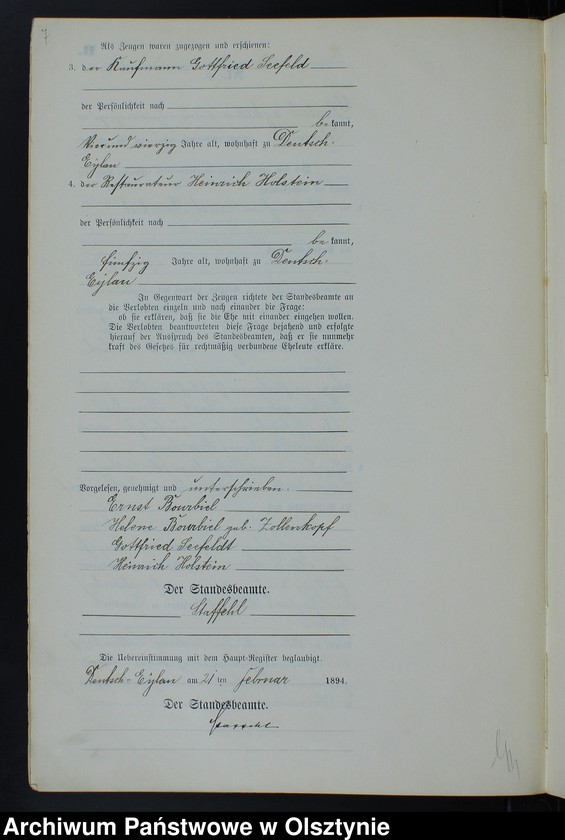 7
Als Zeugen waren zugezogen und erschienen:
3. der Kaufmann Gottfried Seefeld
der Persönlichkeit nach
be kannt,
Vierundvierzig Jahre alt, wohnhaft zu Deutsch-
Eylau
4. der Restaurateur Heinrich Holstein
der Persönlichkeit nach
be kannt,
fünfzig Jahre alt, wohnhaft zu Deutsch-
Eylau
In Gegenwart der Zeugen richtete der Standesbeamte an
die Verlobten einzeln und nach einander die Frage:
ob sie erklären, daß sie die Ehe mit einander eingehen wollen.
Die Verlobten beantworteten diese Frage bejahend und erfolgte
hierauf der Ausspruch des Standesbeamten, daß er sie nunmehr
kraft des Gesetzes für rechtmäßig verbundene Eheleute erkläre.
Vorgelesen, genehmigt und unterschrieben.
Ernst Bourbiel
Helene Bourbiel geb. Zollenkopf
Gottfried Seefeldt
Heinrich Holstein
Der Standesbeamte.
Staffehl
Die Uebereinstimmung mit dem Haupt-Register beglaubigt.
Deutsch-Eylau am 21 ten Februar 1894.
Der Standesbeamte.
Archiwum Państwowe w Olsztynie